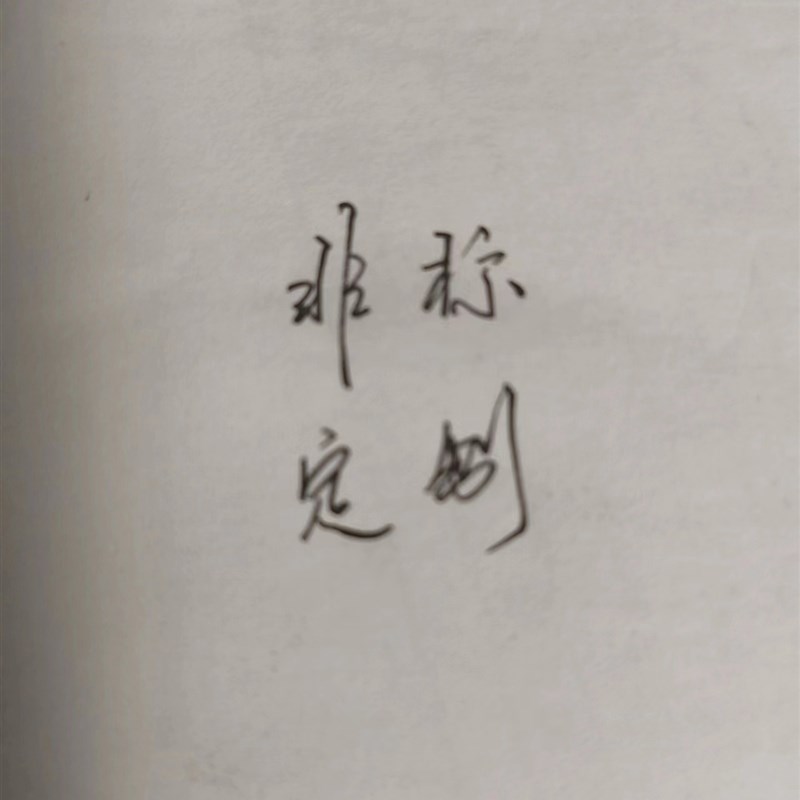 非标
定制